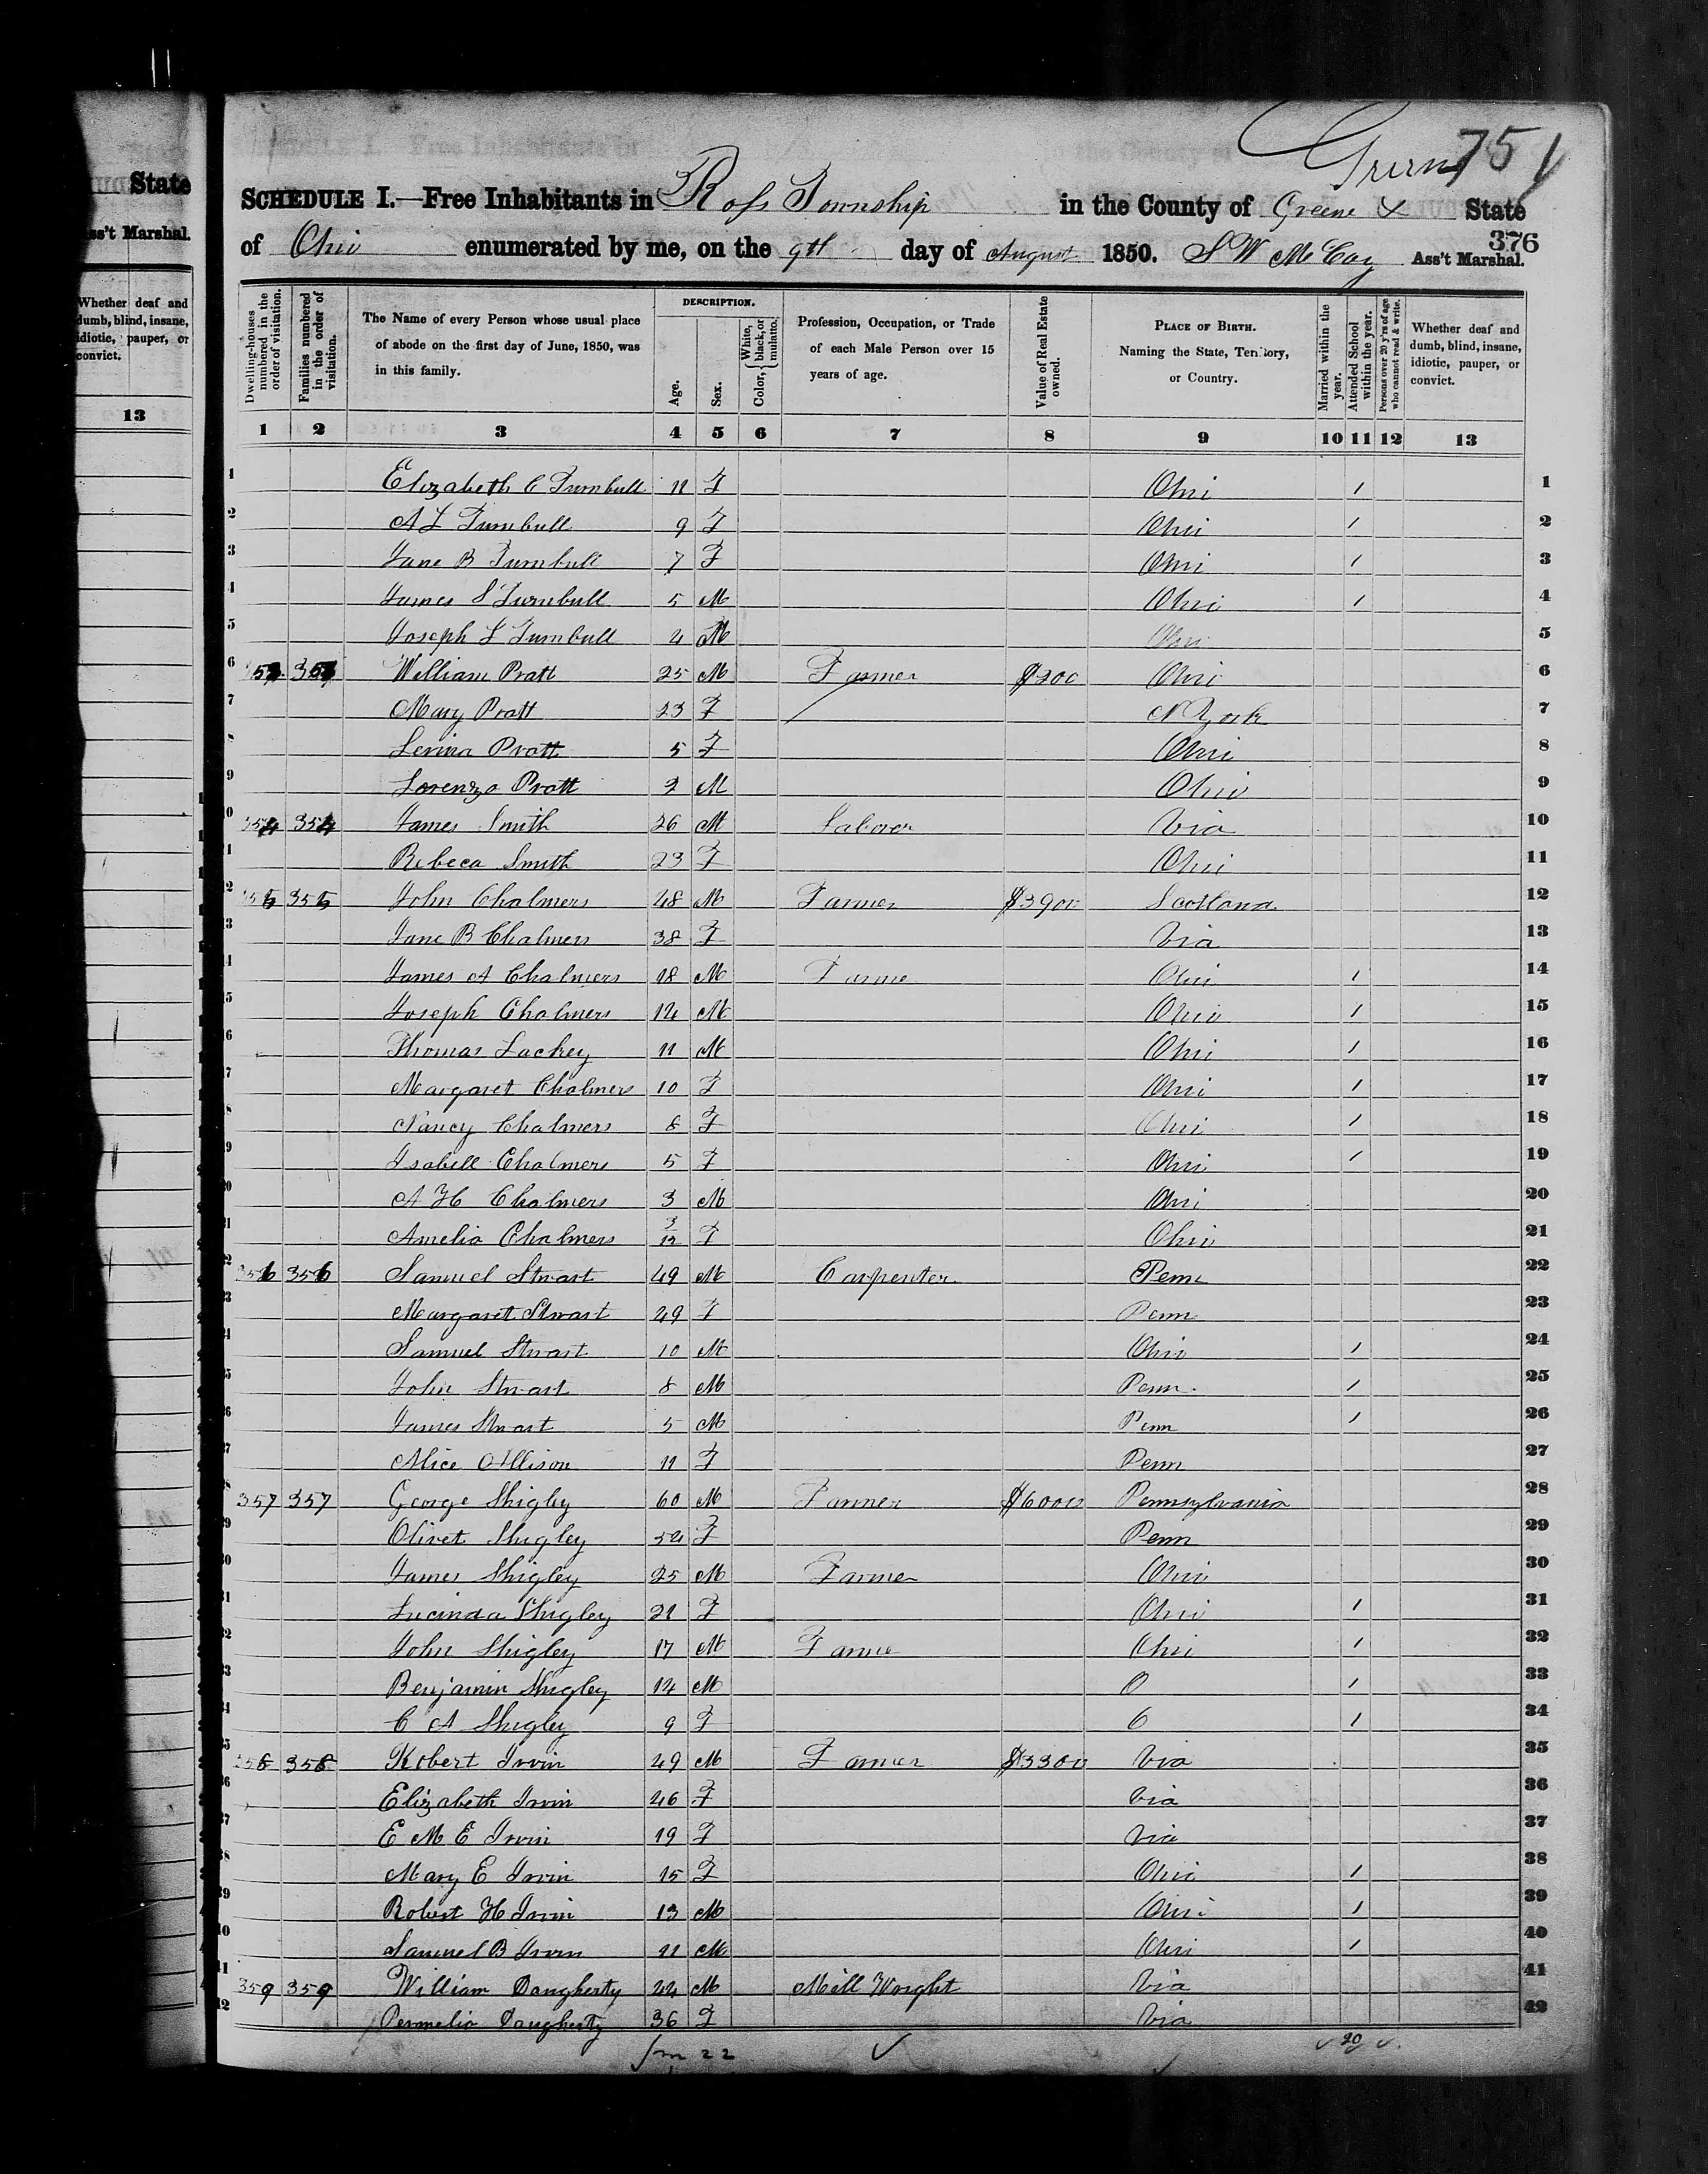 State
ss't Marshal.
Whether deaf and
dumb, blind, insane,
idiotic, pauper, or
convict.
13
Greene 751
SCHEDULE I.—Free Inhabitants in Ross Township in the County of Greene & State
376
of Ohio enumerated by me, on the 9th day of August 1850. S W McCoy Ass't Marshal.
Dwelling-houses numbered in the order of visitation.
Families numbered in the order of visitation.
The Name of every Person whose usual place of abode on the first day of June, 1850, was in this family.
DESCRIPTION.
Age.
Sex.
Color, { White, black, or mulatto.
Profession, Occupation, or Trade of each Male Person over 15 years of age.
Value of Real Estate owned.
PLACE OF BIRTH.
Naming the State, Territory, or Country.
Married within the year.
Attended School within the year.
Persons over 20 y'rs of age who cannot read & write.
Whether deaf and dumb, blind, insane, idiotic, pauper, or convict.
1 2 3 4 5 6 7 8 9 10 11 12 13
1 Elizabeth C Turnbull 11 F Ohio 1 1
2 A L Turnbull 9 F Ohio 1 2
3 Jane B Turnbull 7 F Ohio 1 3
4 James S Turnbull 5 M Ohio 1 4
5 Joseph L Turnbull 4 M Ohio 5
6 353 353 William Pratt 25 M Farmer $200 Ohio 6
7 Mary Pratt 23 F N York 7
8 Levina Pratt 5 F Ohio 8
9 Lorenzo Pratt 2 M Ohio 9
10 354 354 James Smith 26 M Laborer Via 10
11 Rebeca Smith 23 F Ohio 11
12 355 355 John Chalmers 48 M Farmer $3900 Scotland 12
13 Jane B Chalmers 38 F Via 13
14 James A Chalmers 18 M Farme Ohio 1 14
15 Joseph Chalmers 14 M Ohio 1 15
16 Thomas Lackey 11 M Ohio 1 16
17 Margaret Chalmers 10 F Ohio 1 17
18 Nancy Chalmers 8 F Ohio 1 18
19 Isabell Chalmers 5 F Ohio 1 19
20 A H Chalmers 3 M Ohio 20
21 Amelia Chalmers 3/12 F Ohio 21
22 356 356 Samuel Stuart 49 M Carpenter Penn 22
23 Margaret Stuart 49 F Penn 23
24 Samuel Stuart 10 M Ohio 1 24
25 John Stuart 8 M Penn. 1 25
26 James Stuart 5 M Penn 1 26
27 Alice Allison 11 F Penn 27
28 357 357 George Shigley 60 M Farmer $6000 Pennsylvania 28
29 Olivet Shigley 54 F Penn 29
30 James Shigley 25 M Farmer Ohio 30
31 Lucinda Shigley 21 F Ohio 1 31
32 John Shigley 17 M Farme Ohio 1 32
33 Benjamin Shigley 14 M O 1 33
34 C A Shigley 9 F O 1 34
35 358 358 Robert Irvin 49 M Farmer $3300 Via 35
36 Elizabeth Irvin 46 F Via 36
37 E M E Irvin 19 F Via 37
38 Mary E Irvin 15 F Ohio 1 38
39 Robert H Irvin 13 M Ohio 1 39
40 Samuel B Irvin 11 M Ohio 1 40
41 359 359 William Daugherty 44 M Mill Wright Via 41
42 Permelia Daugherty 36 F Via 42
m 22 20